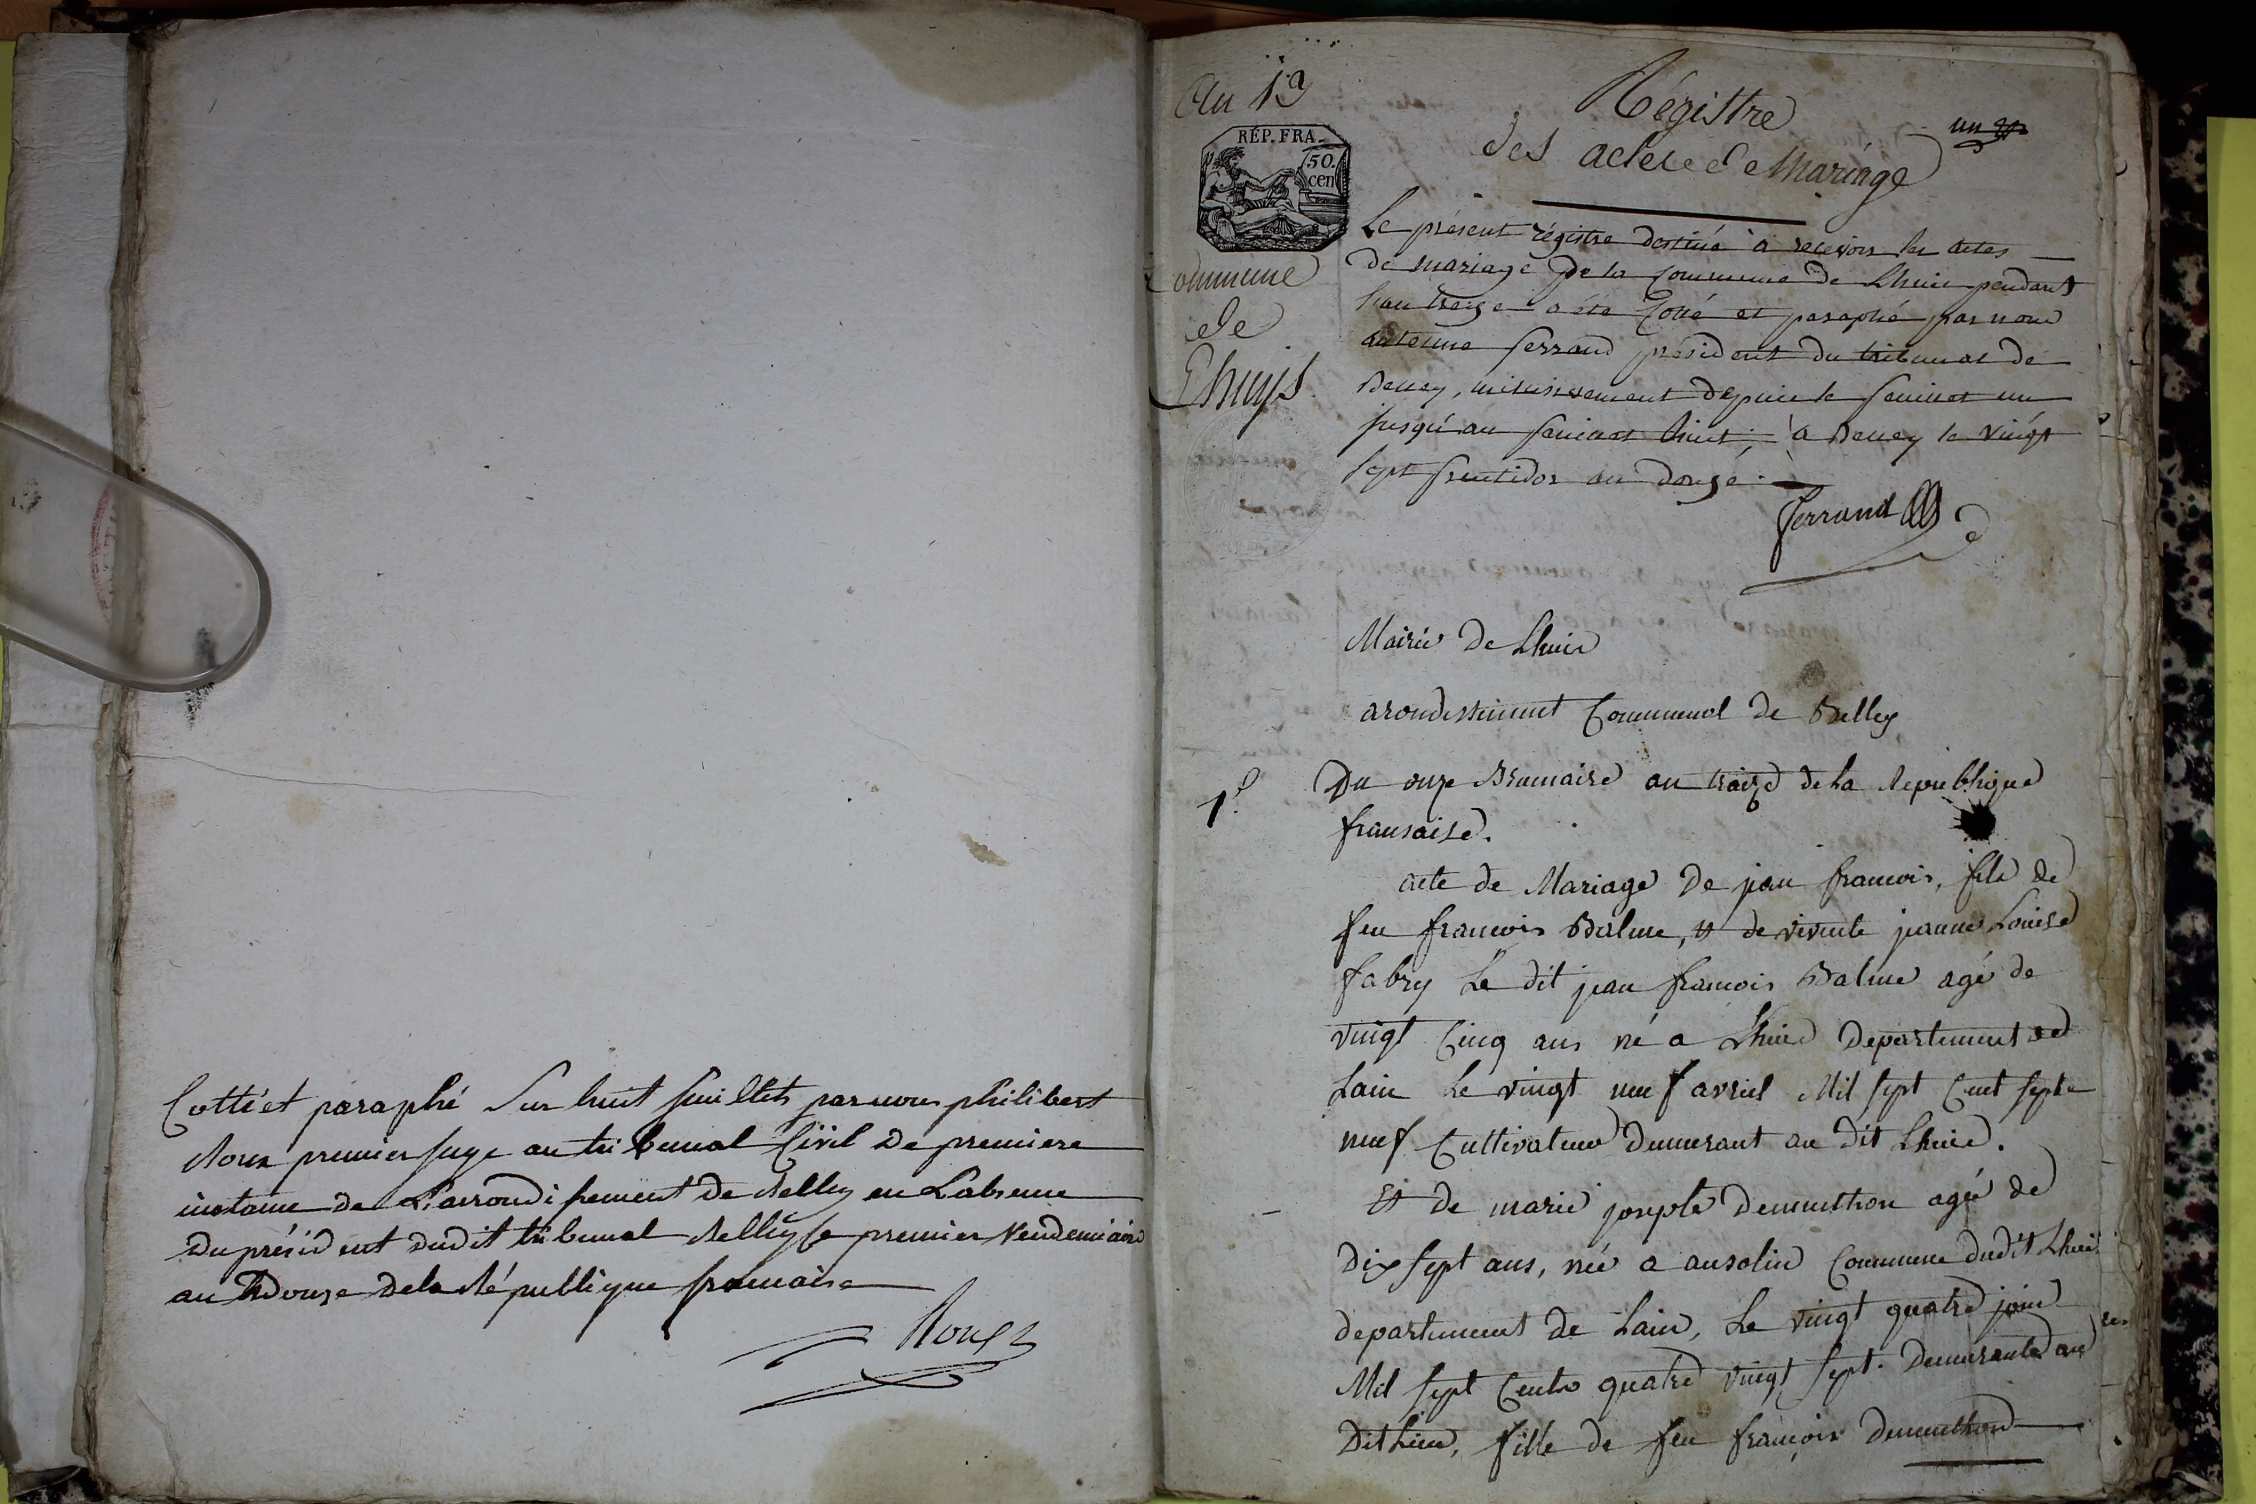 Cotté et paraphé Sur huit feuillets par nous philibert
Roux premier juge au tribunal Civil de premiere
instance de L'arrondissement de Belley en Labsence
du président dudit tribunal Belley le premier Vendemiaire
an douze de la République francaise
Roux
An 13
RÉP. FRA.
50.
cen
Commune
de
Lhuys
Régistre
des actes de Mariage
un
Le présent régistre destiné à recevoir les actes
de mariage de la Commune de Lhuis pendant
l'an treize a été Cotté et paraphé par nous
antelme ferrand président du tribunal de
Belley, successivement depuis le feuillet un
jusqu'au feuillet huit, à Belley le vingt
sept fructidor an douze.
ferrand
Mairie de Lhuis
arondissement Communal de Belley
1º
Du onze Brumaire an traize de la republique
fransaise.
acte de Mariage de jean francois, fils de
feu francois Balme, et de vivente jeanne Louise
fabry Le dit jean francois Balme agé de
vingt Cinq ans né a Lhuis departement de
Lain Le vingt neuf avriel Mil sept Cent septe
neuf Cultivateur demurant au dit Lhuis.
Et de marie josepte demuthon agée de
dix sept ans, née a ansolin Commune dudit Lhuis
departement de Lain, Le vingt quatre juin
Mil sept Cents quatre vingt sept. demurante au
dit Lieu, fille de feu françois demuthon